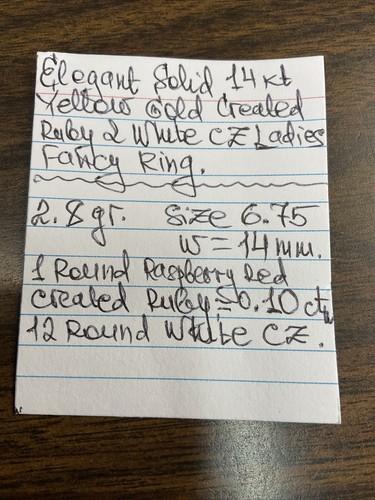 Elegant Solid 14kt
Yellow Gold Created
Ruby & White CZ Ladies
Fancy Ring.
2.8gr. Size 6.75
W=14mm.
1 Round Raspberry Red
Created Ruby ≈0.10ctw
12 Round White CZ.